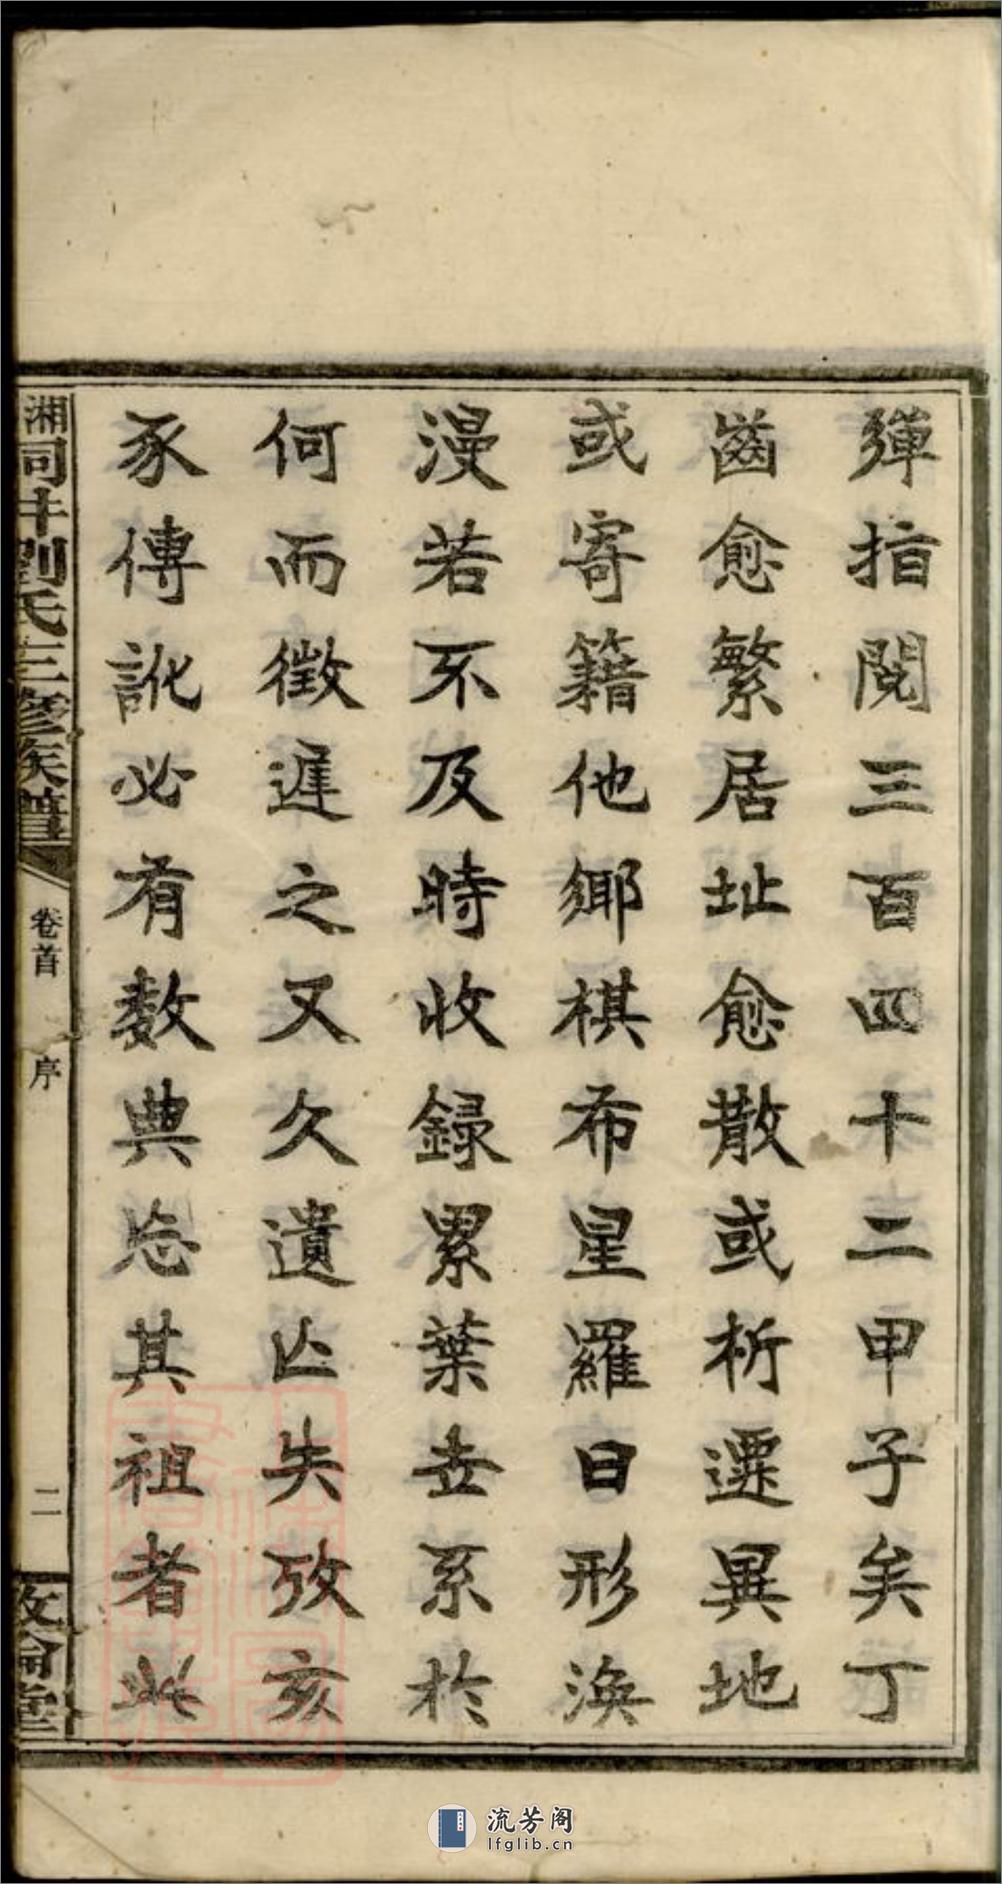 彈指閱三百四十二甲子矣丁
齒愈繁居址愈散或析遷異地
或寄籍他鄉棋布星羅日形渙
漫若不及時收錄累葉世系於
何而徵遲之又久遺亾失攷亥
豕傳訛必有數典忘其祖者此
湘同井劉氏三修族譜
卷首
序
二
流芳阁
lfglib.cn